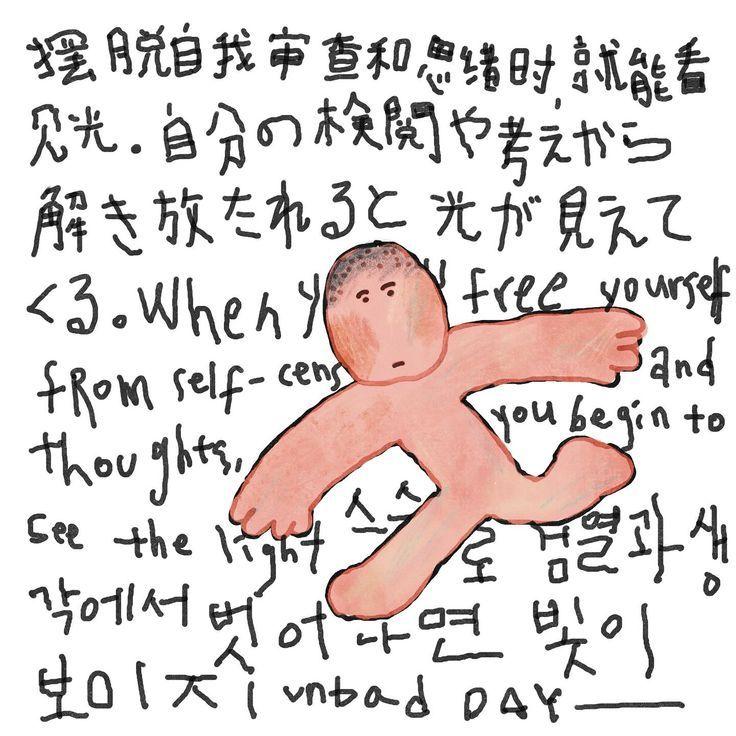 摆脱自我审查和思绪时,就能看
见光.自分の検閲や考えから
解き放たれると光が見えて
くる。When free yourself
fRom self-cens and
thoughts, you begin to
see the light 스스로 검열과 생
각에서 벗어나면 빛이
보이지 unbad DAY——